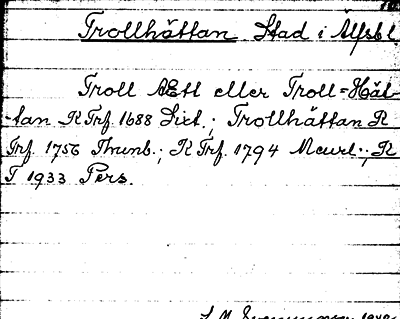 Trollhättan Stad i Älfsbl
Troll Ætl eller Troll=Hät-
tan K Trf. 1688 Dict.; Trollhättan K
Trf. 1756 Thunb.; K Trf. 1794 Meurl.; K
T 1933 Pers.